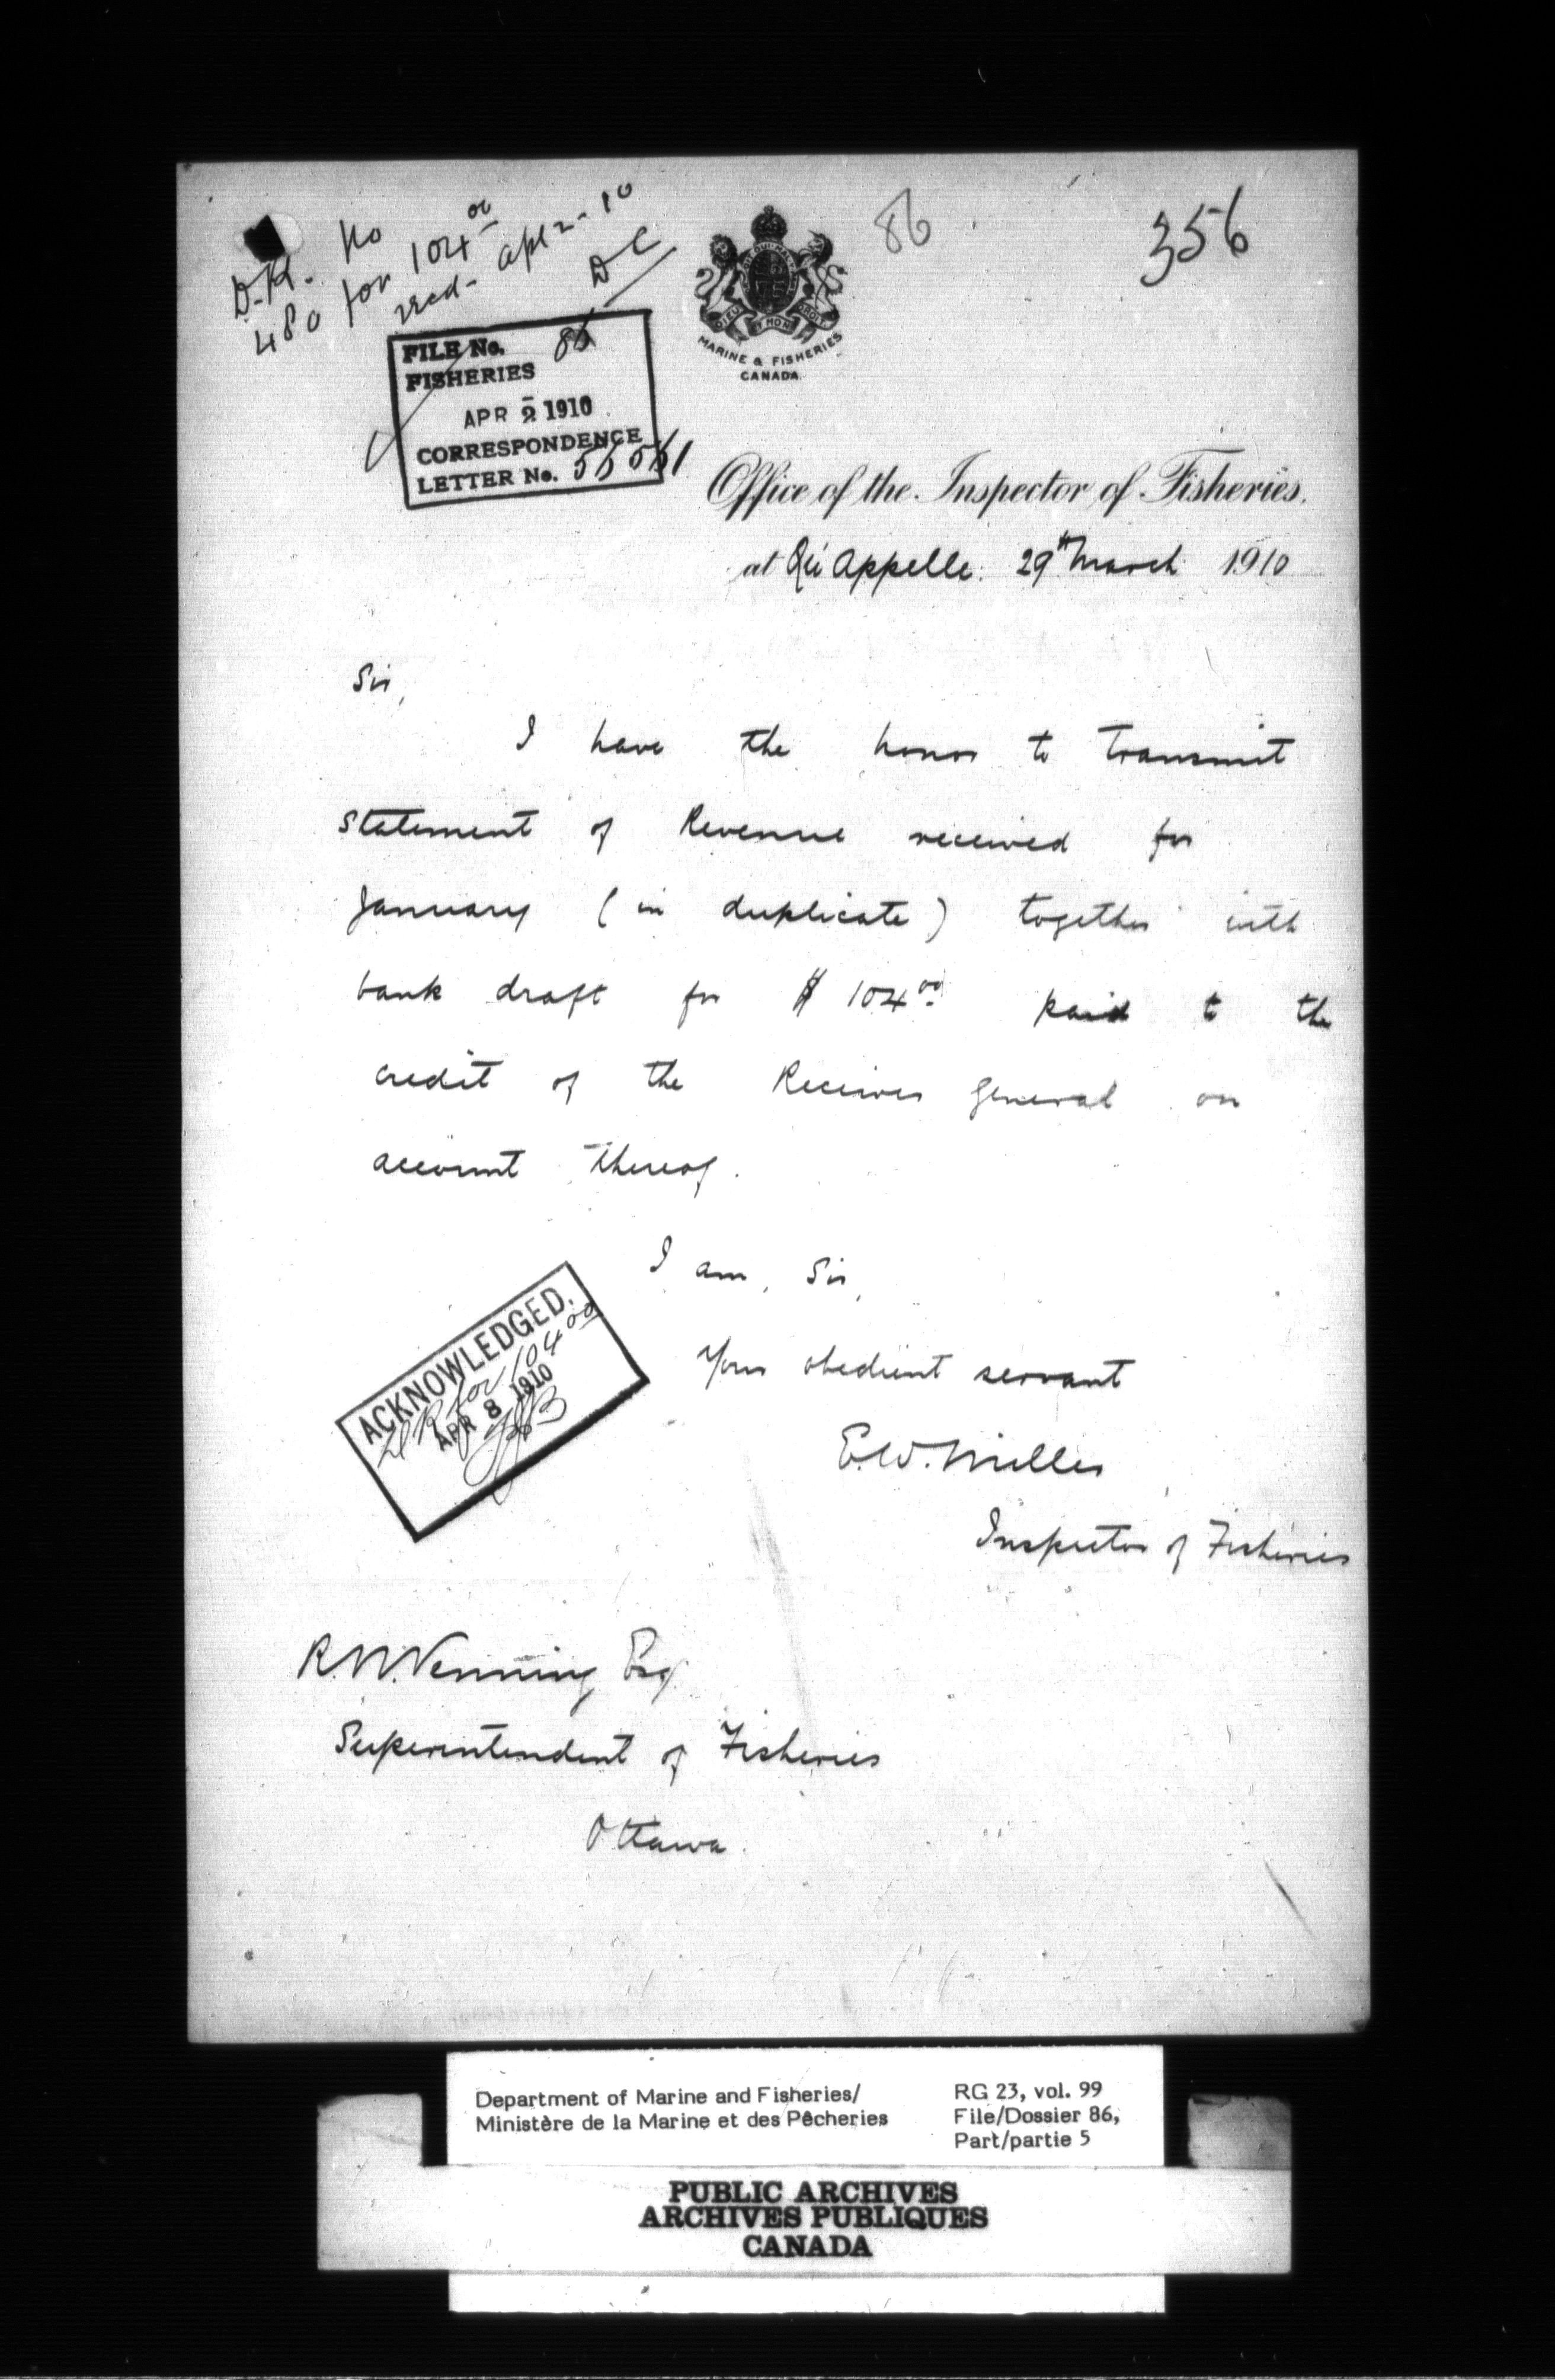 D.R. No
480 for 104 00
recd. Apl 2 - 10
DC
86
356
DIEU ET MON DROIT
MARINE & FISHERIES
CANADA
FILE No. 86
FISHERIES
APR 2 1910
CORRESPONDENCE
LETTER No.
Office of the Inspector of Fisheries.
at Qu'Appelle. 29th March 1910
Sir,
I have the honor to transmit
statement of Revenue received for
January (in duplicate) together with
bank draft for $104 00 paid to the
credit of the Receiver General on
account thereof.
I am, Sir,
Your obedient servant
E.W. Miller
Inspector of Fisheries
ACKNOWLEDGED.
D R for 104 00
APR 8 1910
R.N. Venning Esq.
Superintendent of Fisheries
Ottawa.
Department of Marine and Fisheries/
Ministère de la Marine et des Pêcheries
RG 23, vol. 99
File/Dossier 86,
Part/partie 5
PUBLIC ARCHIVES
ARCHIVES PUBLIQUES
CANADA